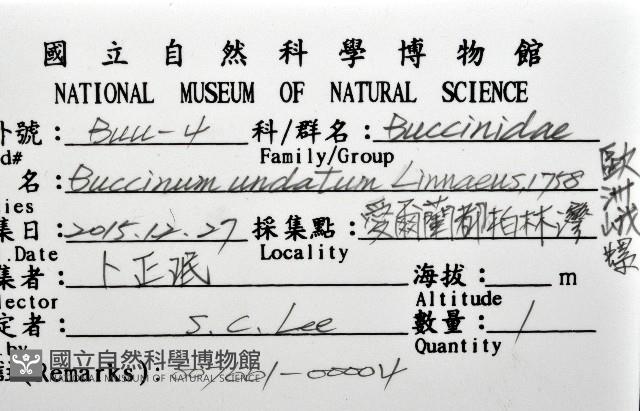 國立自然科學博物館
NATIONAL MUSEUM OF NATURAL SCIENCE
外號: Buu-4 科/群名: Buccinidae
d# Family/Group
名: Buccinum undatum Linnaeus, 1758
歐洲峨螺
ies
集日: 2015.12.27 採集點: 愛爾蘭都柏林灣
.Date Locality
集者: 卜正珉 海拔: m
lector Altitude
定者: S. C. Lee 數量: 1
by Quantity
國立自然科學博物館
NATIONAL MUSEUM OF NATURAL SCIENCE
(Remarks): 01-00004